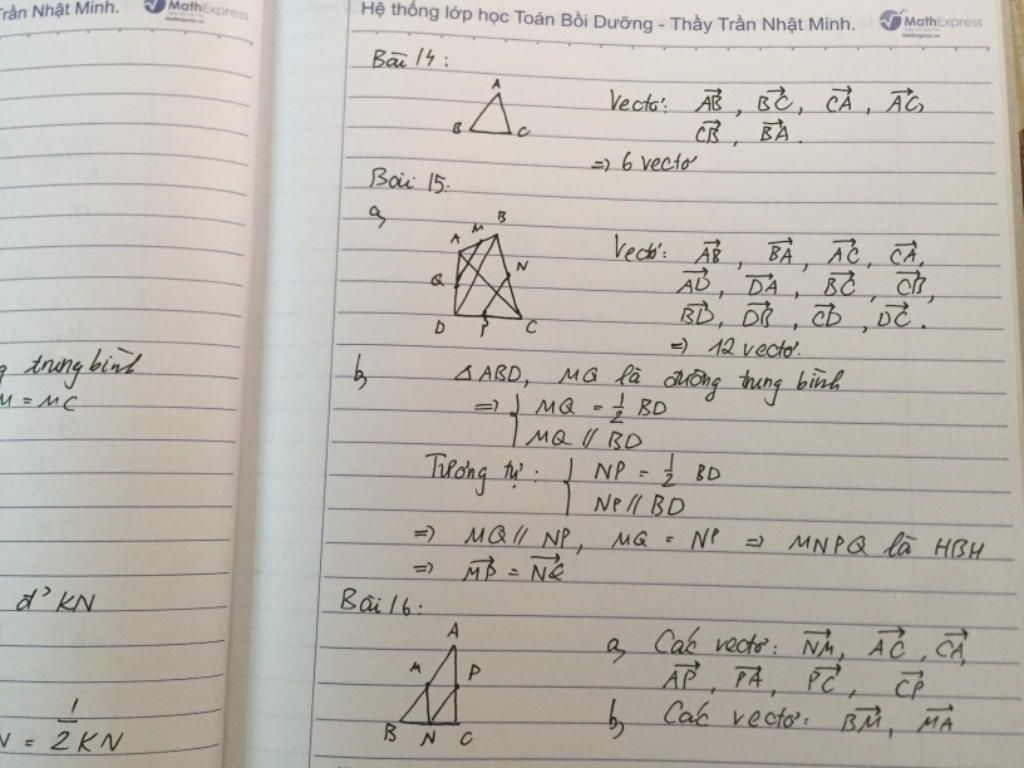 rần Nhật Minh. MathExpress
g trung bình
M = MC
đ² KN
N = 1/2 KN
Hệ thống lớp học Toán Bồi Dưỡng - Thầy Trần Nhật Minh. MathExpress
Bài 14:
A
B C
Vectơ: \overrightarrow{AB}, \overrightarrow{BC}, \overrightarrow{CA}, \overrightarrow{AC},
\overrightarrow{CB}, \overrightarrow{BA}.
=> 6 vectơ
Bài 15:
a,
B
M
A
N
Q
D P C
Vectơ: \overrightarrow{AB}, \overrightarrow{BA}, \overrightarrow{AC}, \overrightarrow{CA},
\overrightarrow{AD}, \overrightarrow{DA}, \overrightarrow{BC}, \overrightarrow{CB},
\overrightarrow{BD}, \overrightarrow{DB}, \overrightarrow{CD}, \overrightarrow{DC}.
=> 12 vectơ.
b, △ABD, MQ là đường trung bình
=> { MQ = 1/2 BD
MQ // BD
Tương tự: { NP = 1/2 BD
NP // BD
=> MQ // NP, MQ = NP => MNPQ là HBH
=> \overrightarrow{MP} = \overrightarrow{NQ}
Bài 16:
A
M P
B N C
a, Các vectơ: \overrightarrow{NM}, \overrightarrow{AC}, \overrightarrow{CA},
\overrightarrow{AP}, \overrightarrow{PA}, \overrightarrow{PC}, \overrightarrow{CP}
b, Các vectơ: \overrightarrow{BM}, \overrightarrow{MA}